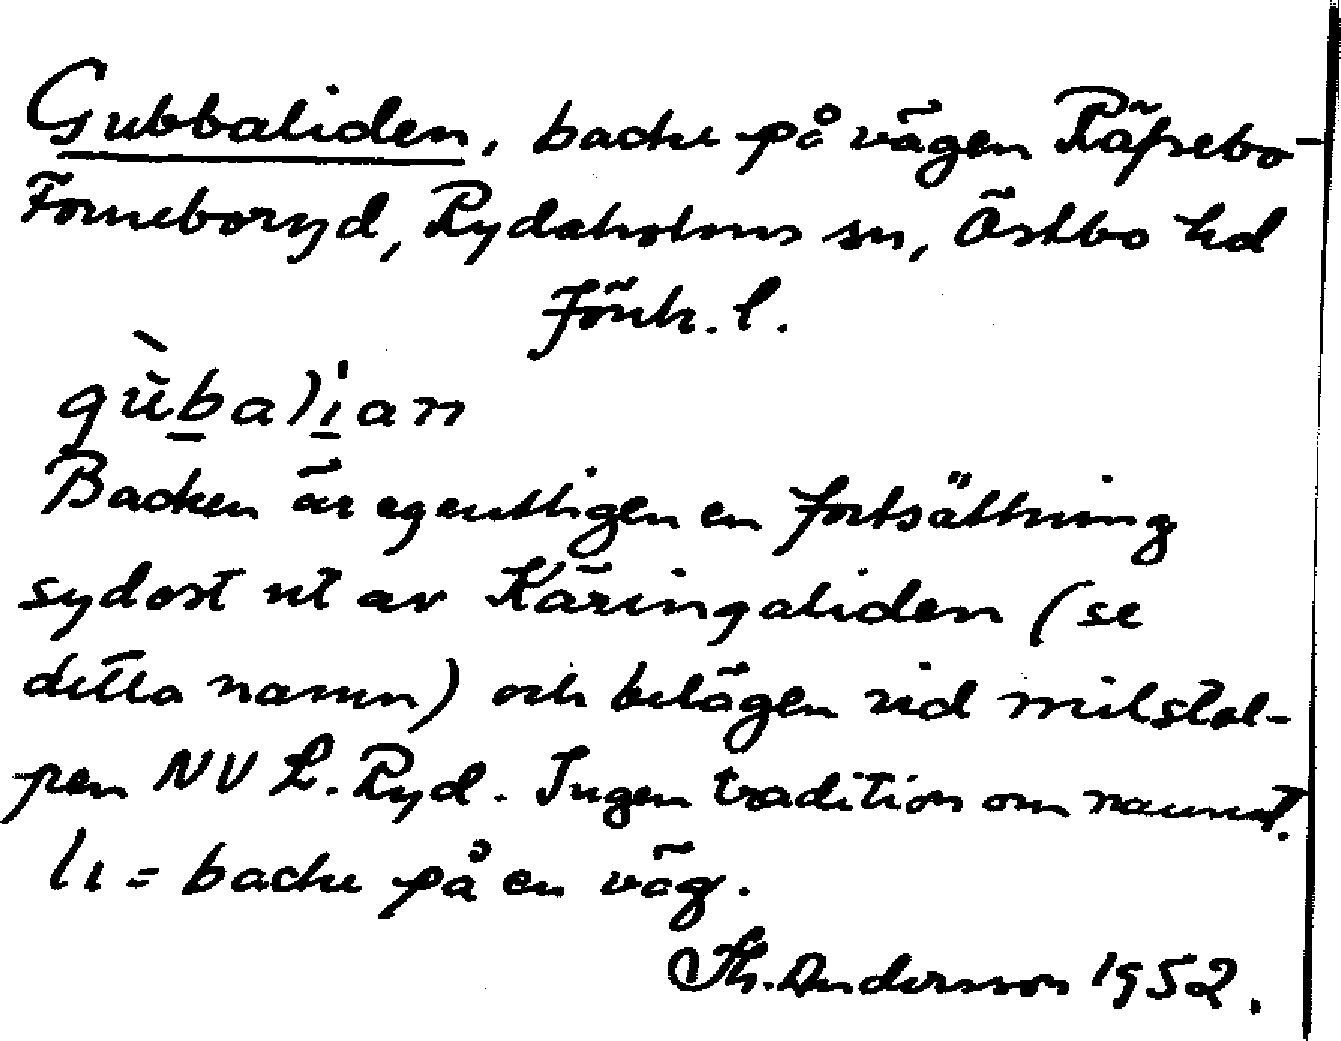 Gubbaliden, backe på vägen Räfsebo-
Forneboryd, Rydaholms sn, Östbo hd
Jönk. l.
gùbalian
Backen är egentligen en fortsättning
sydost ut av Käringaliden (se
detta namn) och belägen vid milstol-
pen NV L. Ryd. Ingen tradition om namnet.
li = backe på en väg.
Th. Andersson 1952.